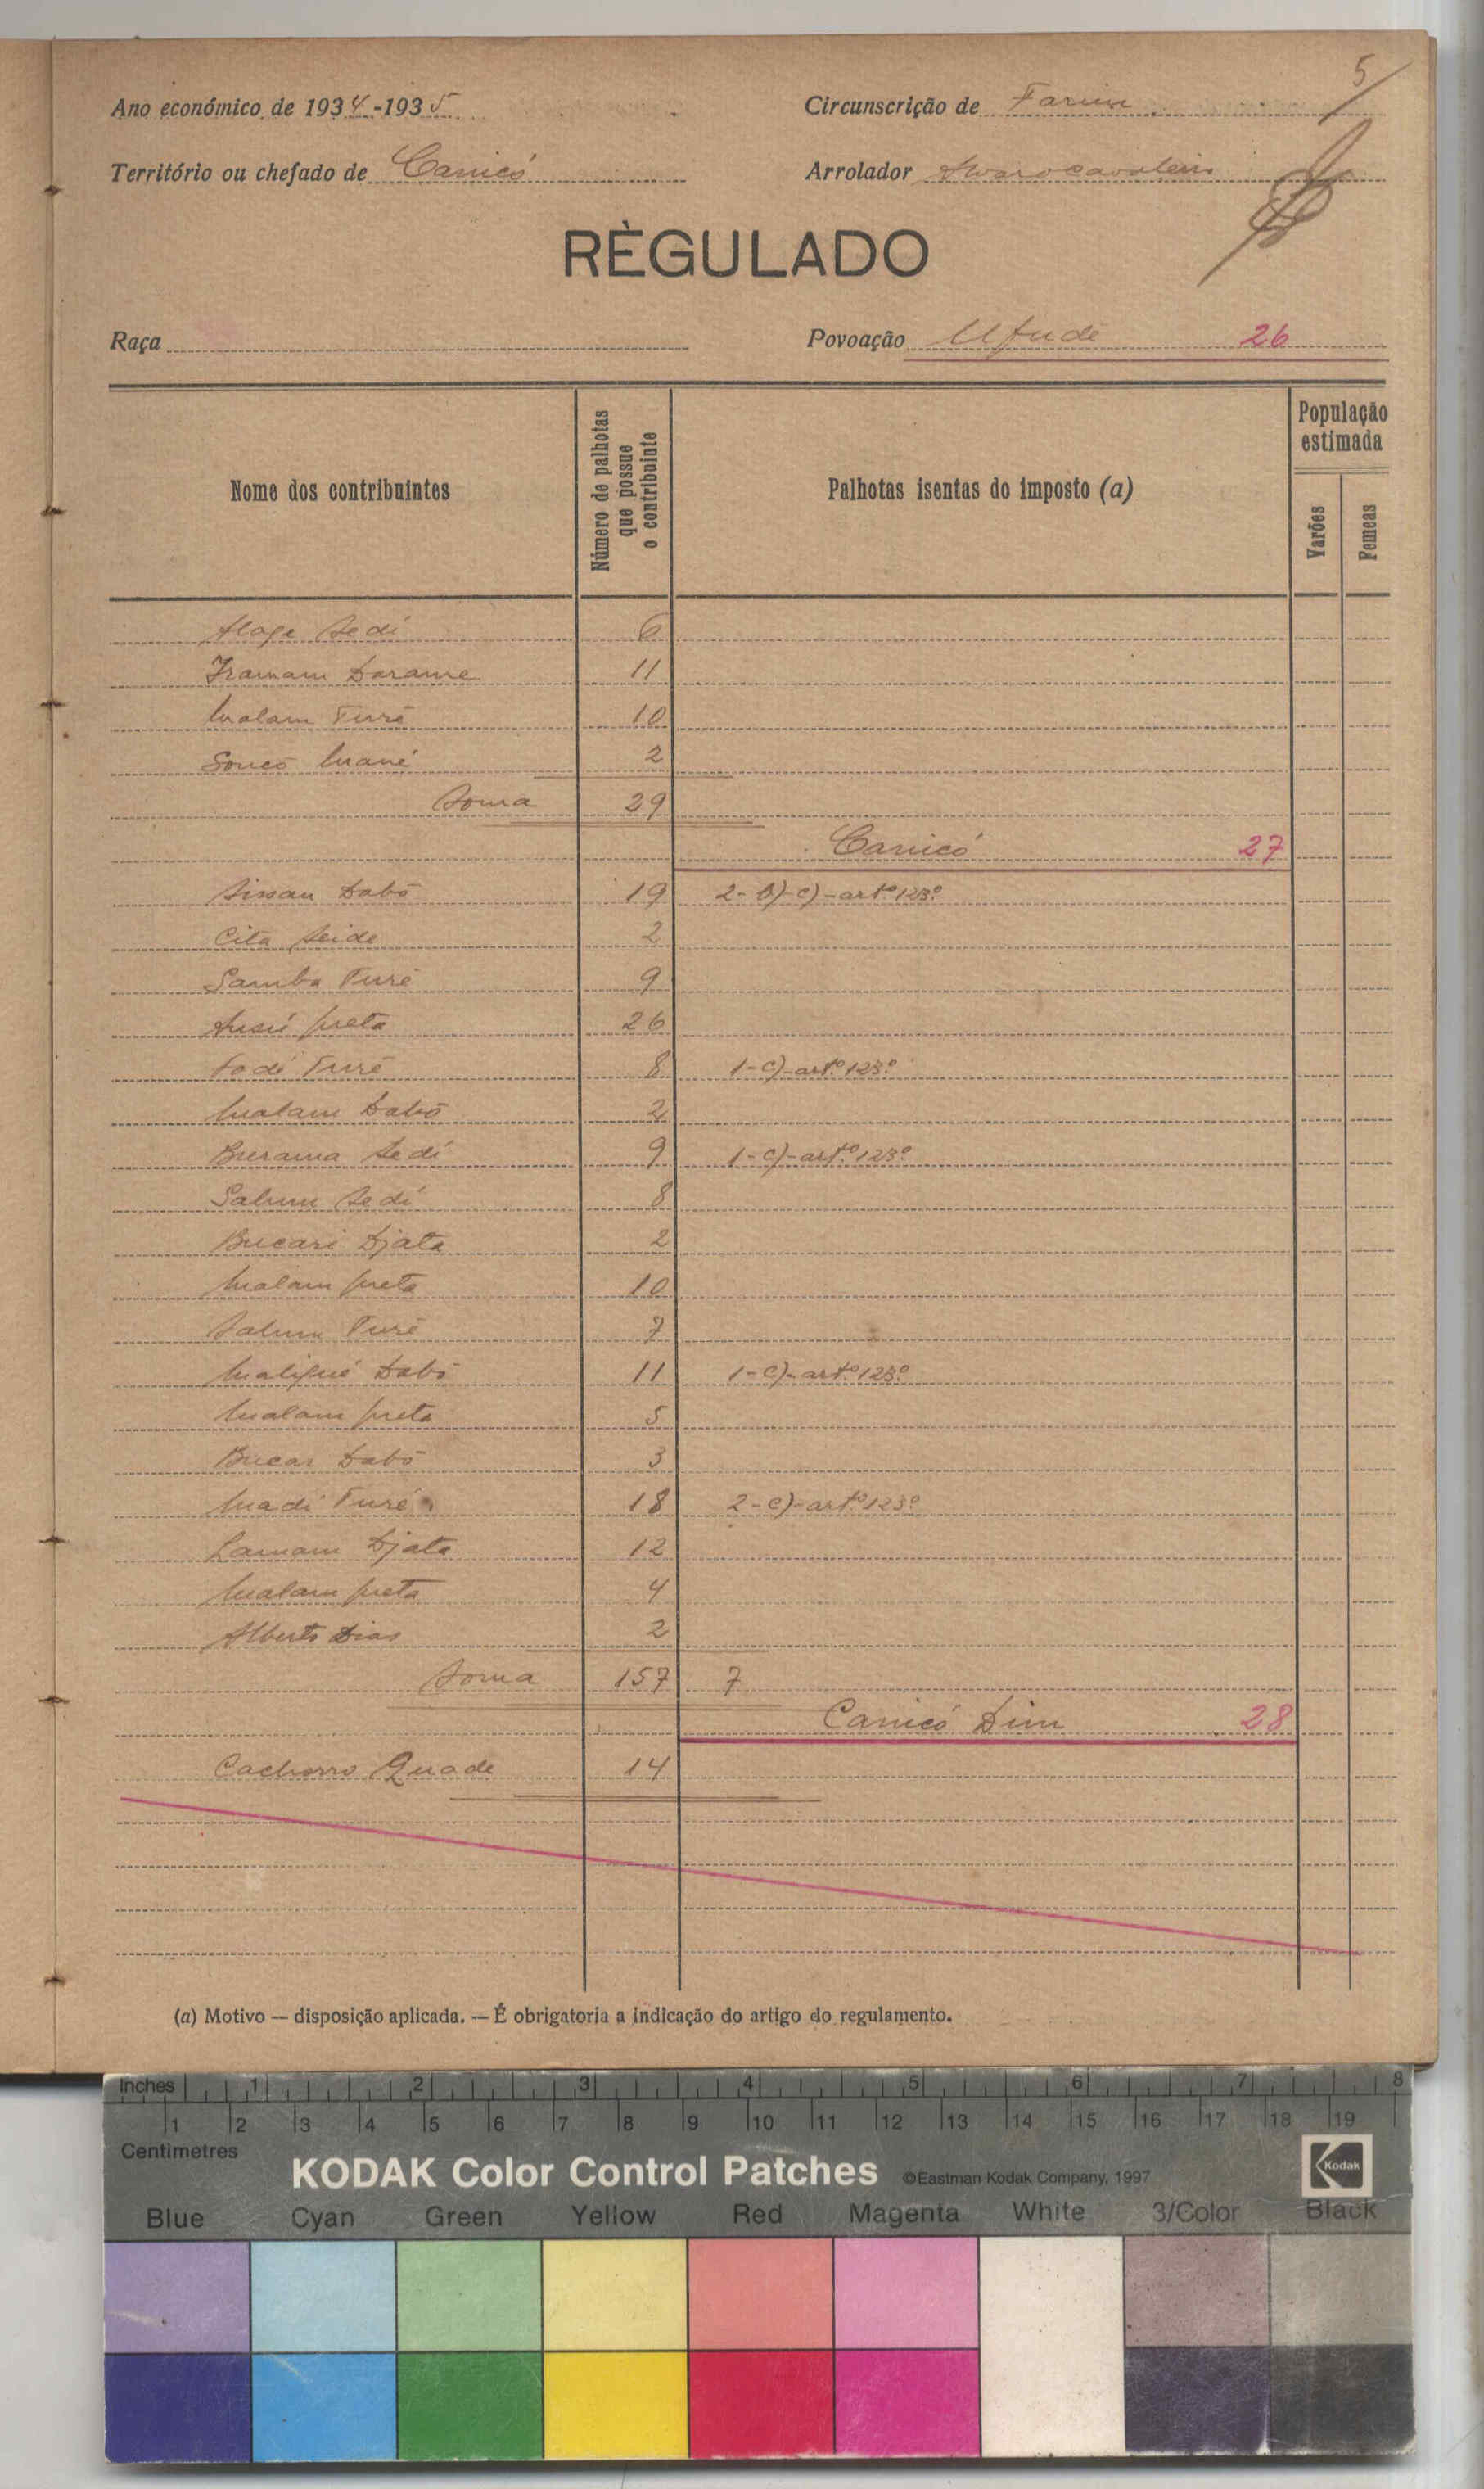 5
Ano económico de 1934-1935
Circunscrição de Farim
Território ou chefado de Canicó
Arrolador Alvaro Cavaleiro
RÈGULADO
Raça
Povoação Ufudé 26
Nome dos contribuintes
Número de palhotas que possue o contribuinte
Palhotas isentas do imposto (a)
População estimada
Varões
Femeas
Alage Sedi 6
Iramam Darame 11
Malam Turé 10
Soncó Mané 2
Soma 29
Canicó 27
Sissau Dabó 19 2-b)-c)-artº 123º
Cita Seide 2
Samba Turé 9
Ansú preta 26
Fodé Turé 8 1-c)-artº 123º
Malam Dabó 2
Burama Sedi 9 1-c)-artº 123º
Salum Sedi 8
Bucari Djata 2
Malam preta 10
Salum Turé 7
Maliqué Dabó 11 1-c)-artº 123º
Malam preta 5
Bucar Dabó 3
Madi Turé 18 2-c)-artº 123º
Lamam Djata 12
Malam preta 4
Alberto Dias 2
Soma 157 7
Canicó Dim 28
Cachorro Quade 14
(a) Motivo — disposição aplicada. — É obrigatoria a indicação do artigo do regulamento.
Inches 1 2 3 4 5 6 7 8
1 2 3 4 5 6 7 8 9 10 11 12 13 14 15 16 17 18 19
Centimetres
KODAK Color Control Patches ©Eastman Kodak Company, 1997 Kodak
Blue Cyan Green Yellow Red Magenta White 3/Color Black